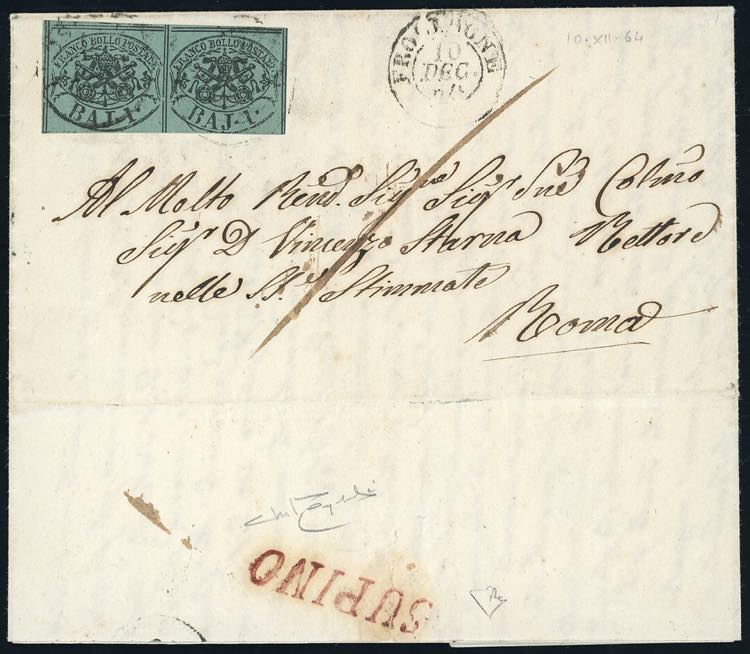 FRANCO BOLLO POSTALE
BAJ. 1.
FRANCO BOLLO POSTALE
BAJ. 1.
FROSINONE
10
DEC.
64
10·XII·64
Al Molto Revd. Sigr Sigr Colmo
Sigr D Vincenzo Starna Rettore
nelle SSe Stimmate
Roma
SUPINO